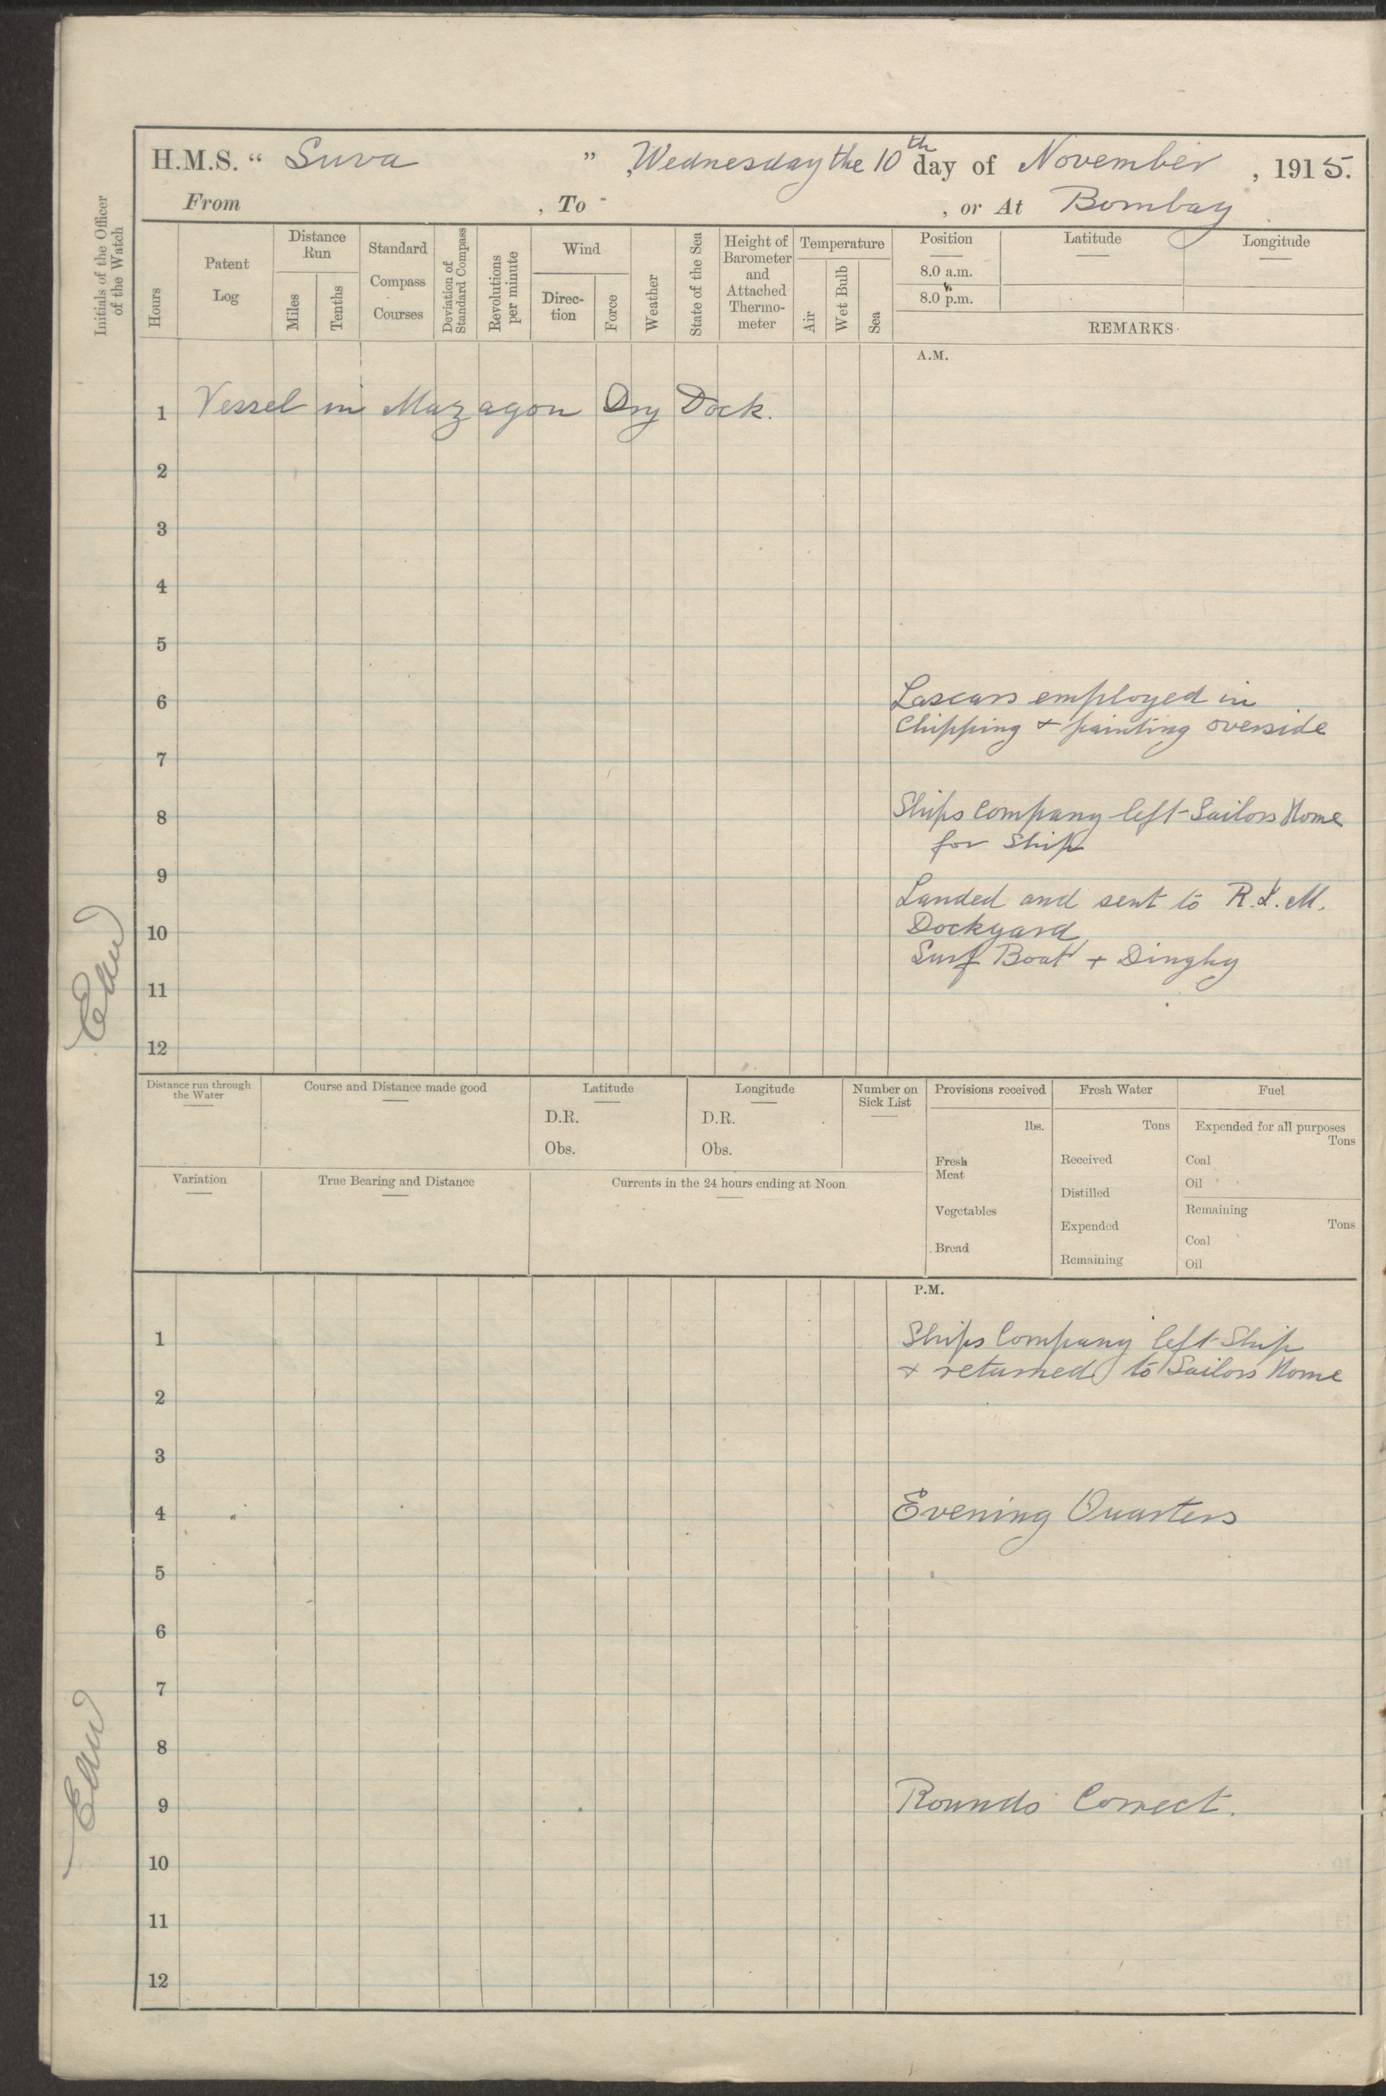 H.M.S. “ Suva ” , Wednesday the 10th day of November , 1915.
From , To - , or At Bombay
Initials of the Officer of the Watch
Hours
Patent Log
Distance Run
Miles
Tenths
Standard Compass Courses
Deviation of Standard Compass
Revolutions per minute
Wind
Direc-tion
Force
Weather
State of the Sea
Height of Barometer and Attached Thermo-meter
Temperature
Air
Wet Bulb
Sea
Position Latitude Longitude
8.0 a.m.
8.0 p.m.
REMARKS
A.M.
1 Vessel in Mazagon Dry Dock.
2
3
4
5
6 Lascars employed in
Chipping & painting overside
7
8 Ships Company left Sailors Home
for Ship
9
Landed and sent to R.I.M.
10 Dockyard
Surf Boat + Dinghy
11
12
Distance run through the Water
Course and Distance made good
Latitude
D.R.
Obs.
Longitude
D.R.
Obs.
Number on Sick List
Provisions received
lbs.
Fresh Meat
Vegetables
Bread
Fresh Water
Tons
Received
Distilled
Expended
Remaining
Fuel
Expended for all purposes
Tons
Coal
Oil
Remaining
Tons
Coal
Oil
Variation
True Bearing and Distance
Currents in the 24 hours ending at Noon
P.M.
1 Ships Company left Ship
& returned to Sailors Home
2
3
4 Evening Quarters
5
6
7
8
9 Rounds Correct.
10
11
12